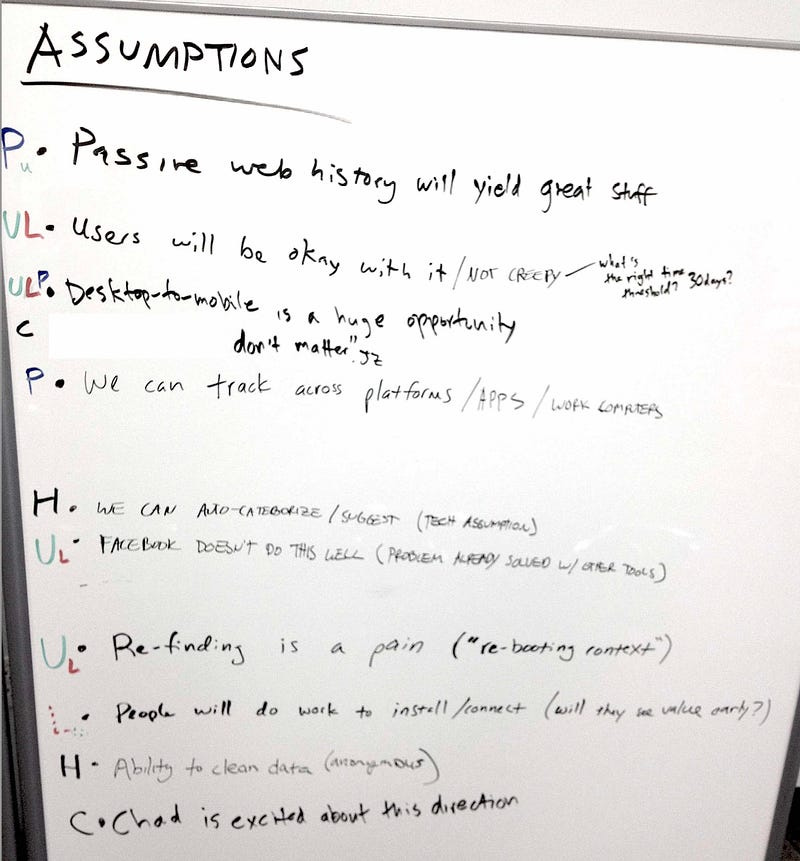 ASSUMPTIONS
Pu • Passive web history will yield great stuff
UL • Users will be okay with it / NOT CREEPY — what's the right time threshold? 30 days?
ULP • Desktop-to-mobile is a huge opportunity
C don't matter". JZ
P • We can track across platforms / APPS / WORK COMPUTERS
H • WE CAN AUTO-CATEGORIZE / SUGGEST (TECH ASSUMPTION)
UL • FACEBOOK DOESN'T DO THIS WELL (PROBLEM ALREADY SOLVED W/ OTHER TOOLS)
UL • Re-finding is a pain ("re-booting context")
L • People will do work to install/connect (will they see value early?)
H • Ability to clean data (anonymous)
C • Chad is excited about this direction